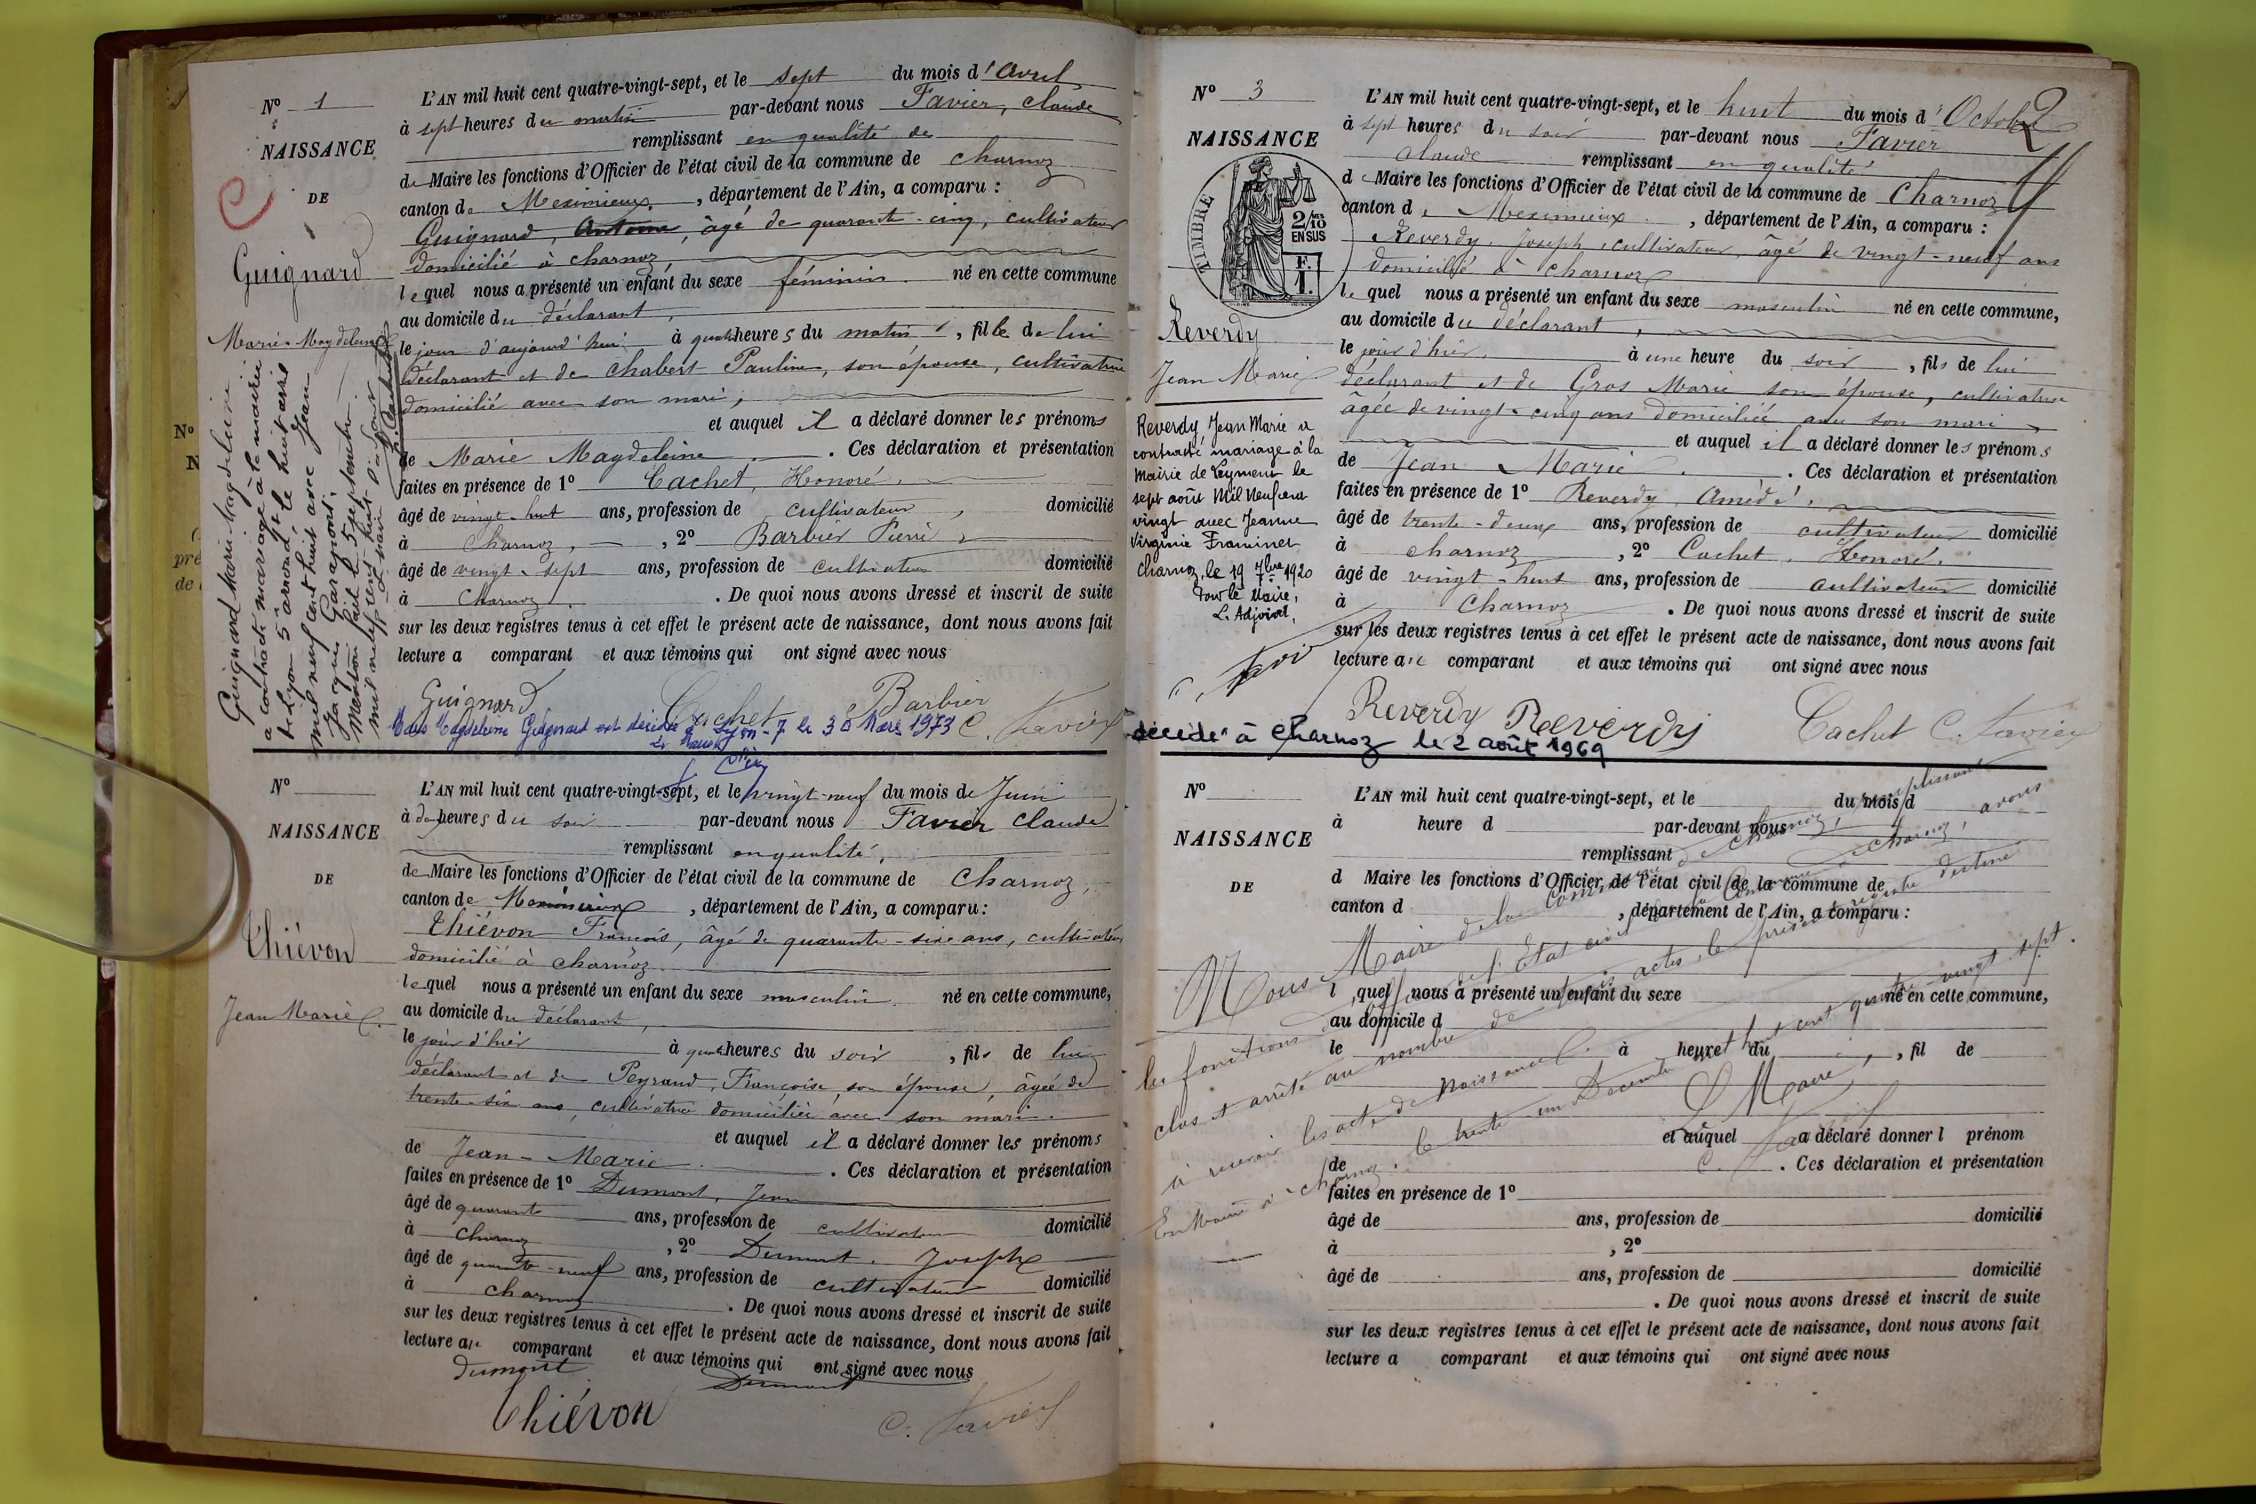 N° 1
NAISSANCE
DE
Guignard
Marie-Magdeleine
Guignard Marie Magdeleine
a contracté mariage à la mairie
de Lyon 5e arrond. le huit août
mil neuf cent huit avec Jean
Mention faite le 5 septembre
L'AN mil huit cent quatre-vingt-sept, et le sept du mois d'Avril
à sept heures du matin par-devant nous Favier, Claude
remplissant en qualité de
de Maire les fonctions d'Officier de l'état civil de la commune de Charnoz
canton de Meximieux, département de l'Ain, a comparu :
Guignard, Antoine, âgé de quarante-cinq, cultivateur
domicilié à charnoz,
lequel nous a présenté un enfant du sexe féminin né en cette commune
au domicile du déclarant,
le jour d'aujourd'hui à quatre heures du matin, fille de lui
déclarant et de Chabert Pauline, son épouse, cultivatrice
domicilié avec son mari,
et auquel il a déclaré donner les prénoms
de Marie Magdeleine. Ces déclaration et présentation
faites en présence de 1° Cachet, Honoré,
âgé de vingt-huit ans, profession de cultivateur, domicilié
à Charnoz, 2° Barbier Pierre,
âgé de vingt-sept ans, profession de cultivateur domicilié
à Charnoz. De quoi nous avons dressé et inscrit de suite
sur les deux registres tenus à cet effet le présent acte de naissance, dont nous avons fait
lecture a comparant et aux témoins qui ont signé avec nous
Guignard Cachet Barbier C. Favier
Marie Magdeleine Guignard est décédée à Lyon-7 le 30 Mars 1973
N°
NAISSANCE
DE
Thiévon
Jean Marie
L'AN mil huit cent quatre-vingt-sept, et le vingt-neuf du mois de Juin
à heures du soir par-devant nous Favier Claude
remplissant en qualité,
de Maire les fonctions d'Officier de l'état civil de la commune de Charnoz,
canton de Meximieux, département de l'Ain, a comparu :
Thiévon François, âgé de quarante-six ans, cultivateur
domicilié à charnoz
lequel nous a présenté un enfant du sexe masculin né en cette commune,
au domicile du déclarant,
le jour d'hier à quatre heures du soir, fils de lui
déclarant et de Peyraud, Françoise, son épouse, âgée de
trente-six ans, cultivatrice domiciliée avec son mari.
et auquel il a déclaré donner les prénoms
de Jean-Marie. Ces déclaration et présentation
faites en présence de 1° Dumont, Jean
âgé de quarante ans, profession de cultivateur domicilié
à Charnoz, 2° Dumont, Joseph
âgé de quarante-neuf ans, profession de cultivateur domicilié
à charnoz. De quoi nous avons dressé et inscrit de suite
sur les deux registres tenus à cet effet le présent acte de naissance, dont nous avons fait
lecture au comparant et aux témoins qui ont signé avec nous
Dumont Dumont
Thiévon C. Favier
2
N° 3
NAISSANCE
TIMBRE
2/10 EN SUS
F. 1.
Reverdy
Jean Marie
Reverdy Jean Marie a
contracté mariage à la
Mairie de Leyment le
sept août Mil Neuf cent
vingt avec Jeanne
Virginie Framinet
Charnoz, le 19 7bre 1920
Pour le Maire,
L'Adjoint,
L'AN mil huit cent quatre-vingt-sept, et le huit du mois d'Octobre
à sept heures du soir par-devant nous Favier
Claude remplissant en qualité
de Maire les fonctions d'Officier de l'état civil de la commune de Charnoz
canton de Meximieux, département de l'Ain, a comparu :
Reverdy, Joseph, cultivateur, âgé de vingt-neuf ans
domicilié à Charnoz
lequel nous a présenté un enfant du sexe masculin né en cette commune,
au domicile du déclarant,
le jour d'hier, à une heure du soir, fils de lui
déclarant et de Gros Marie son épouse, cultivatrice
âgée de vingt-cinq ans domiciliée avec son mari,
et auquel il a déclaré donner les prénoms
de Jean Marie. Ces déclaration et présentation
faites en présence de 1° Reverdy Amédé,
âgé de trente-deux ans, profession de cultivateur domicilié
à charnoz, 2° Cachet, Honoré,
âgé de vingt-huit ans, profession de cultivateur domicilié
à Charnoz. De quoi nous avons dressé et inscrit de suite
sur les deux registres tenus à cet effet le présent acte de naissance, dont nous avons fait
lecture au comparant et aux témoins qui ont signé avec nous
Reverdy Reverdy Cachet C. Favier
décédé à Charnoz le 2 août 1969
N°
NAISSANCE
DE
L'AN mil huit cent quatre-vingt-sept, et le du mois d
à heure d par-devant nous
remplissant
d Maire les fonctions d'Officier de l'état civil de la commune de
canton d , département de l'Ain, a comparu :
l quel nous a présenté un enfant du sexe né en cette commune,
au domicile d
le à heure du , fil de
et auquel a déclaré donner l prénom
de . Ces déclaration et présentation
faites en présence de 1°
âgé de ans, profession de domicilié
à , 2°
âgé de ans, profession de domicilié
. De quoi nous avons dressé et inscrit de suite
sur les deux registres tenus à cet effet le présent acte de naissance, dont nous avons fait
lecture a comparant et aux témoins qui ont signé avec nous
Nous Maire de la commune de Charnoz, remplissant
les fonctions d'officier de l'Etat civil de la Commune de Charnoz, avons
clos et arrêté au nombre de trois actes, le présent registre destiné
à recevoir les actes de naissance.
En Mairie à Charnoz, le trente-un Décembre mil huit cent quatre-vingt sept.
Le Maire,
C. Favier